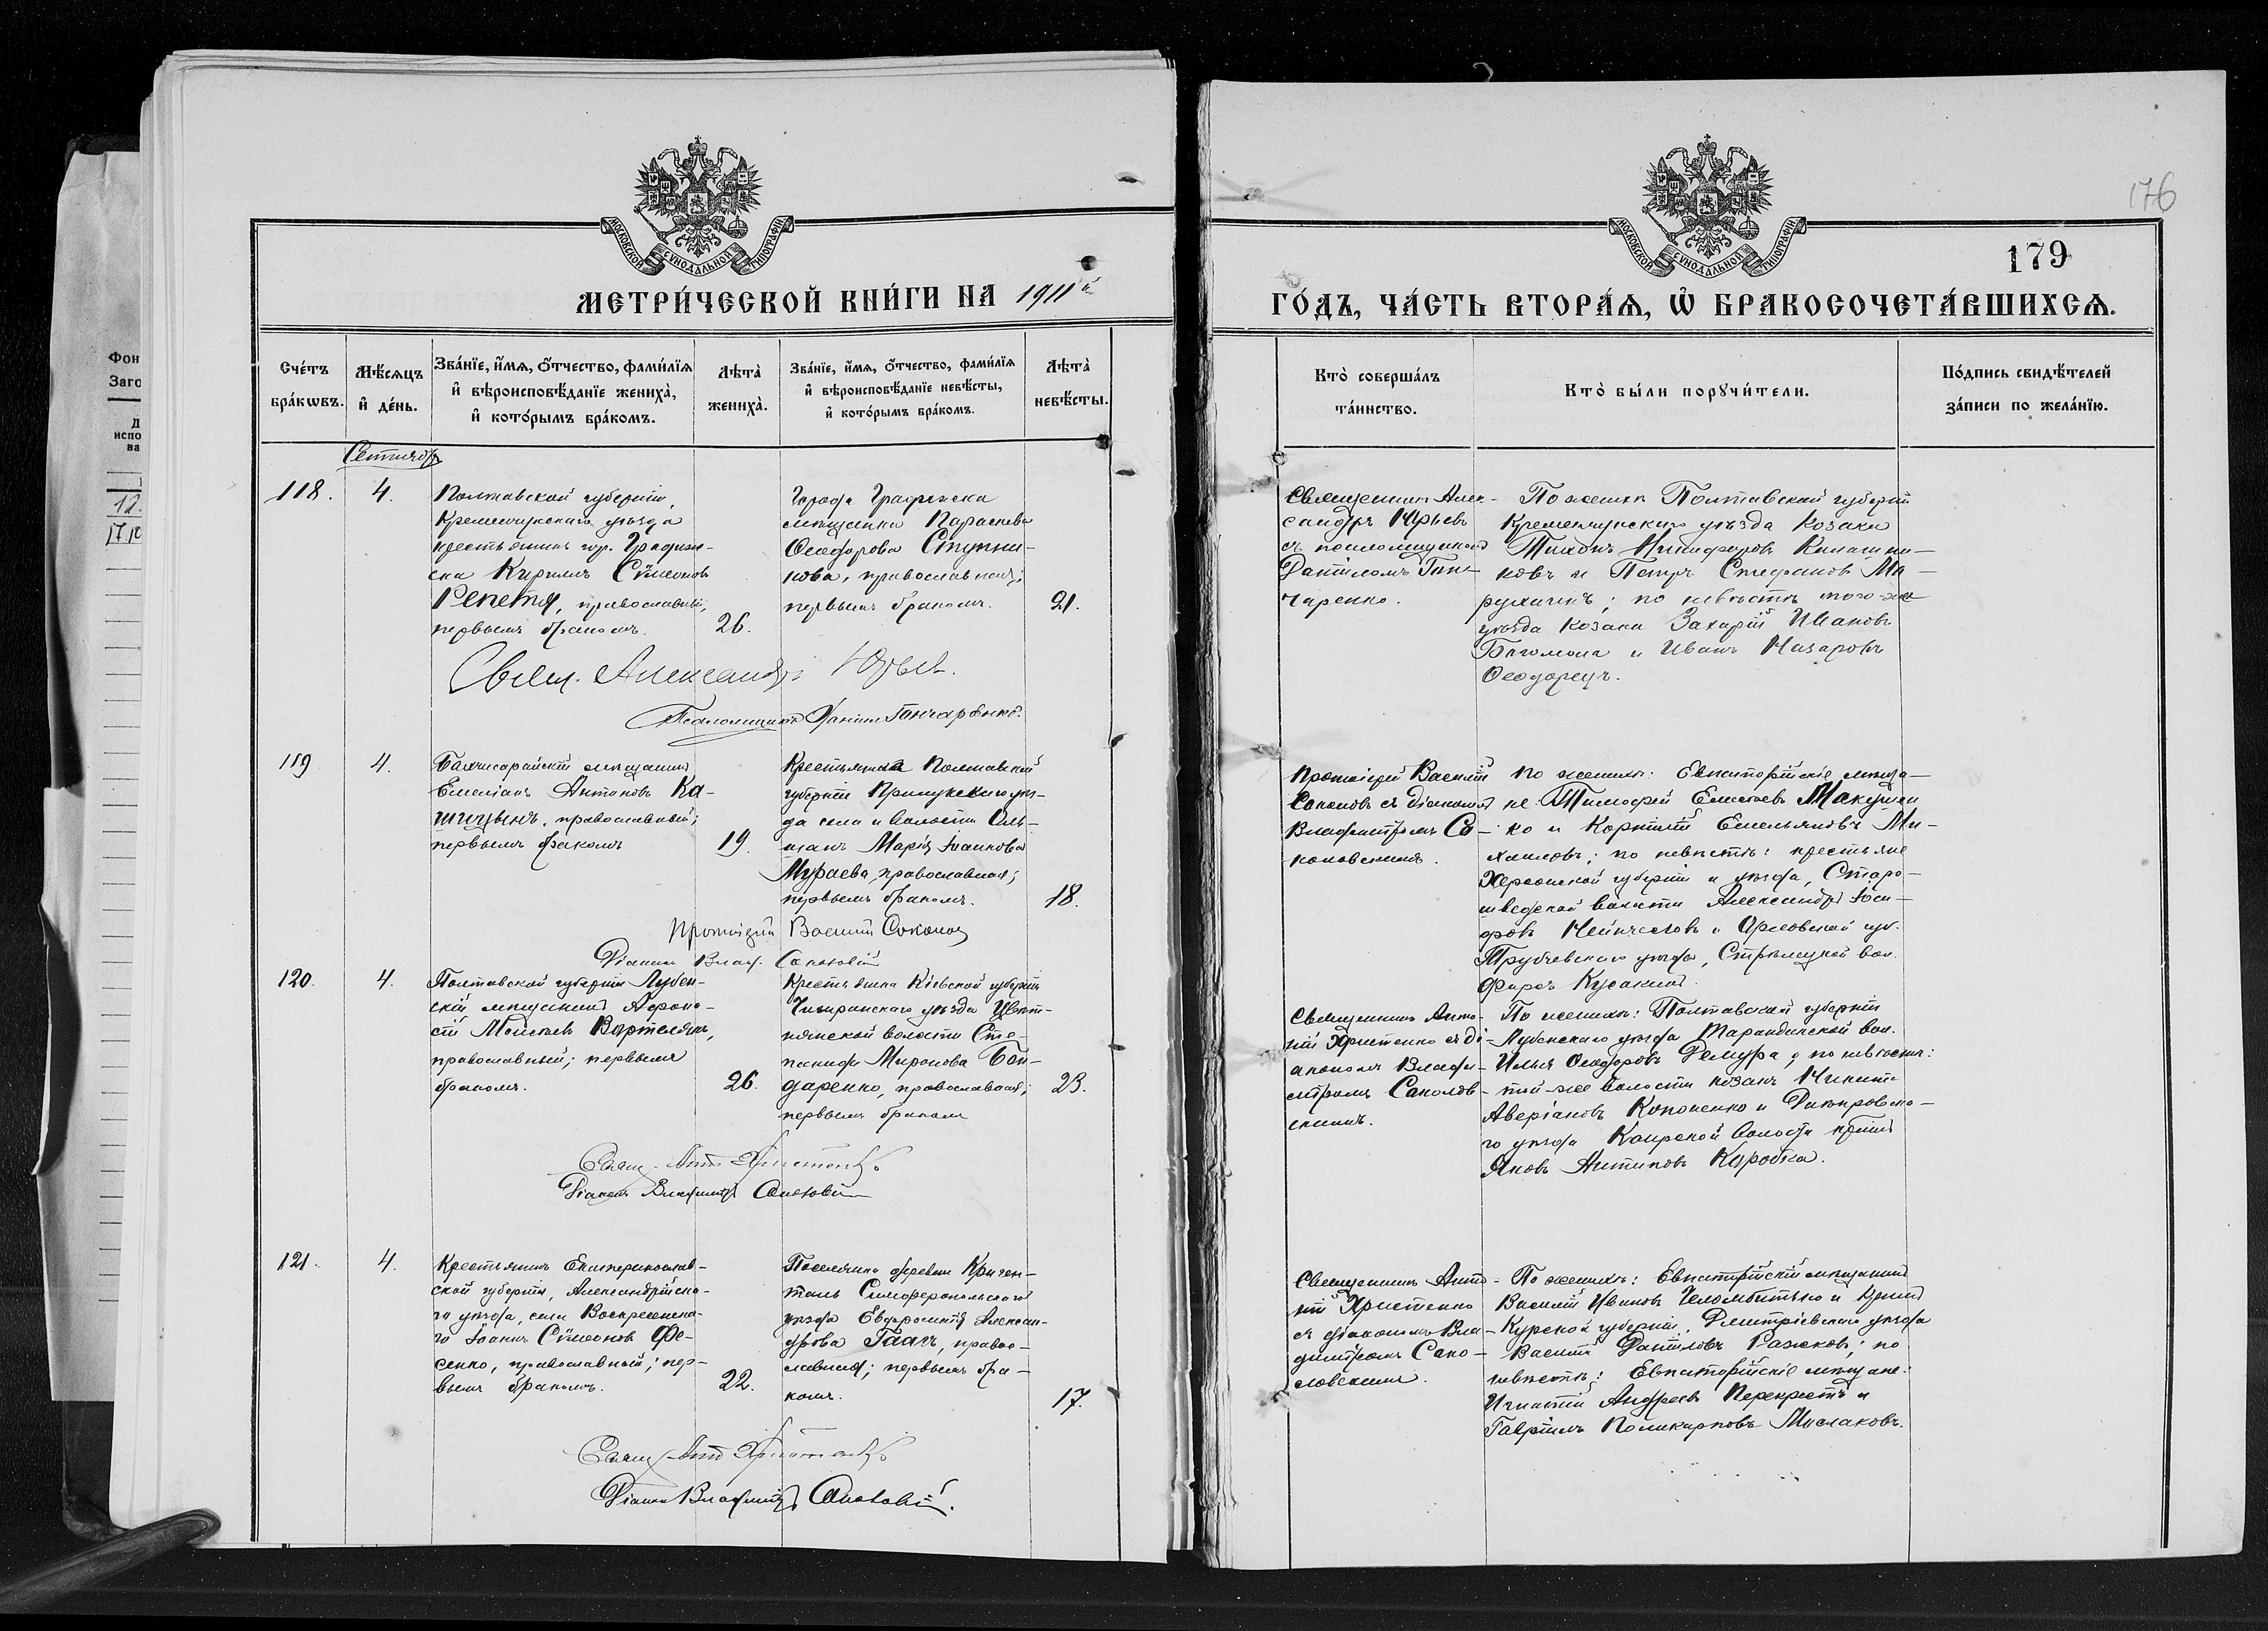 МЕТРИ́ЧЕСКОЙ КНИ́ГИ НА 1911й
Сче́тъ бра́кѡвъ.
Мѣ́сяцъ и де́нь.
Зва́нїе, и҆́мѧ, о҆́тчество, фами́лїѧ
и҆ вѣроисповѣ́данїе жениха̀,
и҆ кото́рымъ бра́комъ.
Лѣта̀ жениха̀.
Зва́нїе, и҆́мѧ, о҆́тчество, фами́лїѧ
и҆ вѣроисповѣ́данїе невѣ́сты,
и҆ кото́рымъ бра́комъ.
Лѣта̀ невѣ́сты.
Сентябрь
118.
4.
Полтавской губерніи,
Кременчугскаго уѣзда
крестьянинъ гор. Градиж-
ска Кириллъ Сѵмеоновъ
Репетя, православный,
первымъ бракомъ.
26.
Города Градижска
мѣщанка Параскева
Ѳеодорова Ступни-
кова, православная;
первымъ бракомъ.
21.
Свящ. Александръ Юрьев.
Псаломщикъ Даніил Гончаренко.
119
4.
Бахчисарайскій мѣщанинъ
Емеліанъ Антоновъ Ка-
шицынъ, православный;
первымъ бракомъ
19.
Крестьянка Полтавской
губерніи Прилукскаго уѣз-
да села и волости Оль-
шанъ Марія Іоаннова
Мураева, православная;
первымъ бракомъ.
18.
Протоіерей Василій Соколов
Діаконъ Влад. Соколовскій
120.
4.
Полтавской губерніи Лубен-
скій мѣщанинъ Аѳана-
сій Моисеевъ
православный; первымъ
бракомъ.
26.
Крестьянка Кіевской губерніи
Чигиринскаго уѣзда
волости Сте-
панида Миронова Бон-
даренко, православная;
первымъ бракомъ
23.
Свящ. Ант. Христенко
Діаконъ Владимиръ
121.
4.
Крестьянинъ Екатеринослав-
ской губерніи, Александрійска-
го уѣзда, села Воскресенска-
го Іоаннъ Сѵмеоновъ Фе-
сенко, православный; пер-
вымъ бракомъ.
22.
Поселянка деревни Кронен-
таль Симферопольскаго
уѣзда Евдокія Алексан-
дрова Гаагъ, право-
славная; первымъ бра-
комъ.
17.
Свящ. Ант. Христенко
Діаконъ Владимиръ
176
179
ГО́ДЪ, ЧА́СТЬ ВТОРА́Ѧ, Ѡ҆ БРАКОСОЧЕТА́ВШИХСѦ.
Кто̀ соверша́лъ
та́инство.
Кто̀ бы́ли порꙋчи́тели.
По́дпись свидѣ́телей
за́писи по жела́нїю.
Священникъ Алек-
сандръ Юрьевъ
съ псаломщикомъ
Даніиломъ Гон-
чаренко.
По женихѣ Полтавской губерніи
Кременчугскаго уѣзда козаки
Тихонъ Никифоровъ
ковъ и Петръ Стефановъ Ма-
; по невѣстѣ того-же
уѣзда козаки Захарій Ивановъ
Богомола и Иванъ Назаровъ
Ѳеодорецъ.
Протоіерей Василій
Соколовъ съ діакономъ
Владиміромъ Со-
коловскимъ.
По женихѣ: Евпаторійскіе мѣща-
не: Тимофей Елисеевъ Макушен
ко и Корнилій Емельяновъ Ми-
хайловъ; по невѣстѣ: крестьяне
Херсонской губерніи и уѣзда, Старо-
шведской волости Александръ Іоси-
фовъ и Орловской губ.
Трубчевскаго уѣзда, Стрѣлецкой вол.
Ѳирсъ Кусакинъ.
Священникъ Анто-
ній Христенко съ ді-
акономъ Влади-
міромъ Соколов-
скимъ.
По женихѣ: Полтавской губерніи
Лубенскаго уѣзда Тарандинской вол.
Илья Ѳеодоровъ Демура; по невѣстѣ:
той-же волости козакъ Никита
Аверіановъ Кононенко и Днѣпровска-
го уѣзда Каирской волости крест.
Яковъ Антиповъ Коробка.
Священникъ Анто-
ній Христенко
съ діакономъ Вла-
диміромъ Соко-
ловскимъ.
По женихѣ: Евпаторійскій мѣщанинъ
Василій Ивановъ Челомбитько и крест.
Курской губерніи, Дмитріевскаго уѣзда
Василій Даніиловъ Разсковъ; по
невѣстѣ: Евпаторійскіе мѣщане:
Игнатій Андреевъ Перекрестъ и
Гавріилъ Поликарповъ Мислаковъ.